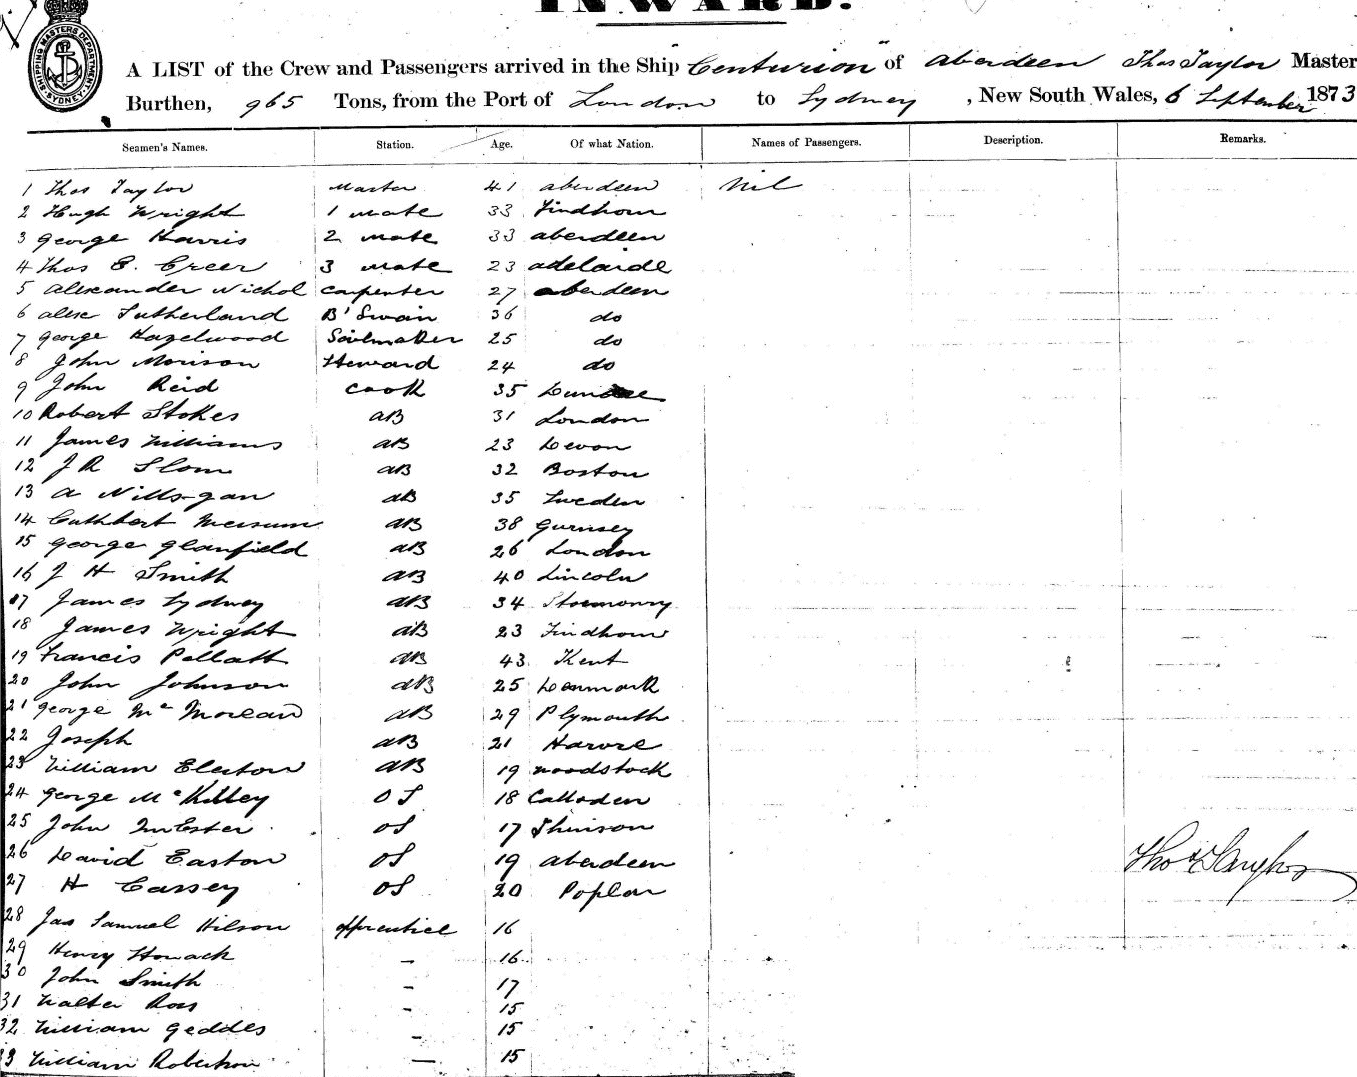 INWARD.
SHIPPING MASTERS DEPARTMENT SYDNEY
A LIST of the Crew and Passengers arrived in the Ship "Centurion" of Aberdeen Thos Taylor Master
Burthen, 965 Tons, from the Port of London to Sydney, New South Wales, 6 September 1873
Seamen's Names. Station. Age. Of what Nation. Names of Passengers. Description. Remarks.
1 Thos Taylor Master 41 aberdeen Nil
2 Hugh Wright 1 mate 33 Findhorn
3 george Harris 2 mate 33 aberdeen
4 Thos E. Creer 3 mate 23 adelaide
5 alexander Nichol carpenter 27 aberdeen
6 alex Sutherland B'Swain 36 do
7 george Hazelwood Sailmaker 25 do
8 John Morison Steward 24 do
9 John Reid cook 35 Dundee
10 Robert Stokes aB 31 London
11 James Williams aB 23 Devon
12 J R Slom aB 32 Boston
13 a Nillsgan aB 35 Sweden
14 Cuthbert Messum aB 38 Gurnsey
15 george glanfield aB 26 London
16 J H Smith aB 40 Lincoln
17 James Sydney aB 34
18 James Wright aB 23 Findhorn
19 Francis Pellatt aB 43 Kent
20 John Johnson aB 25 Denmark
21 george Mc Morean aB 29 Plymouth
22 Joseph aB 21 Havre
23 William Elerton aB 19 woodstock
24 george McKilley OS 18 Culloden
25 John OS 17
26 David Easton OS 19 aberdeen
27 H Cassey OS 20 Poplar
28 Jas Samuel Hilson apprentice 16
29 Henry Howack - 16
30 John Smith - 17
31 Walter Ross - 15
32 William geddes - 15
33 William Robertson - 15